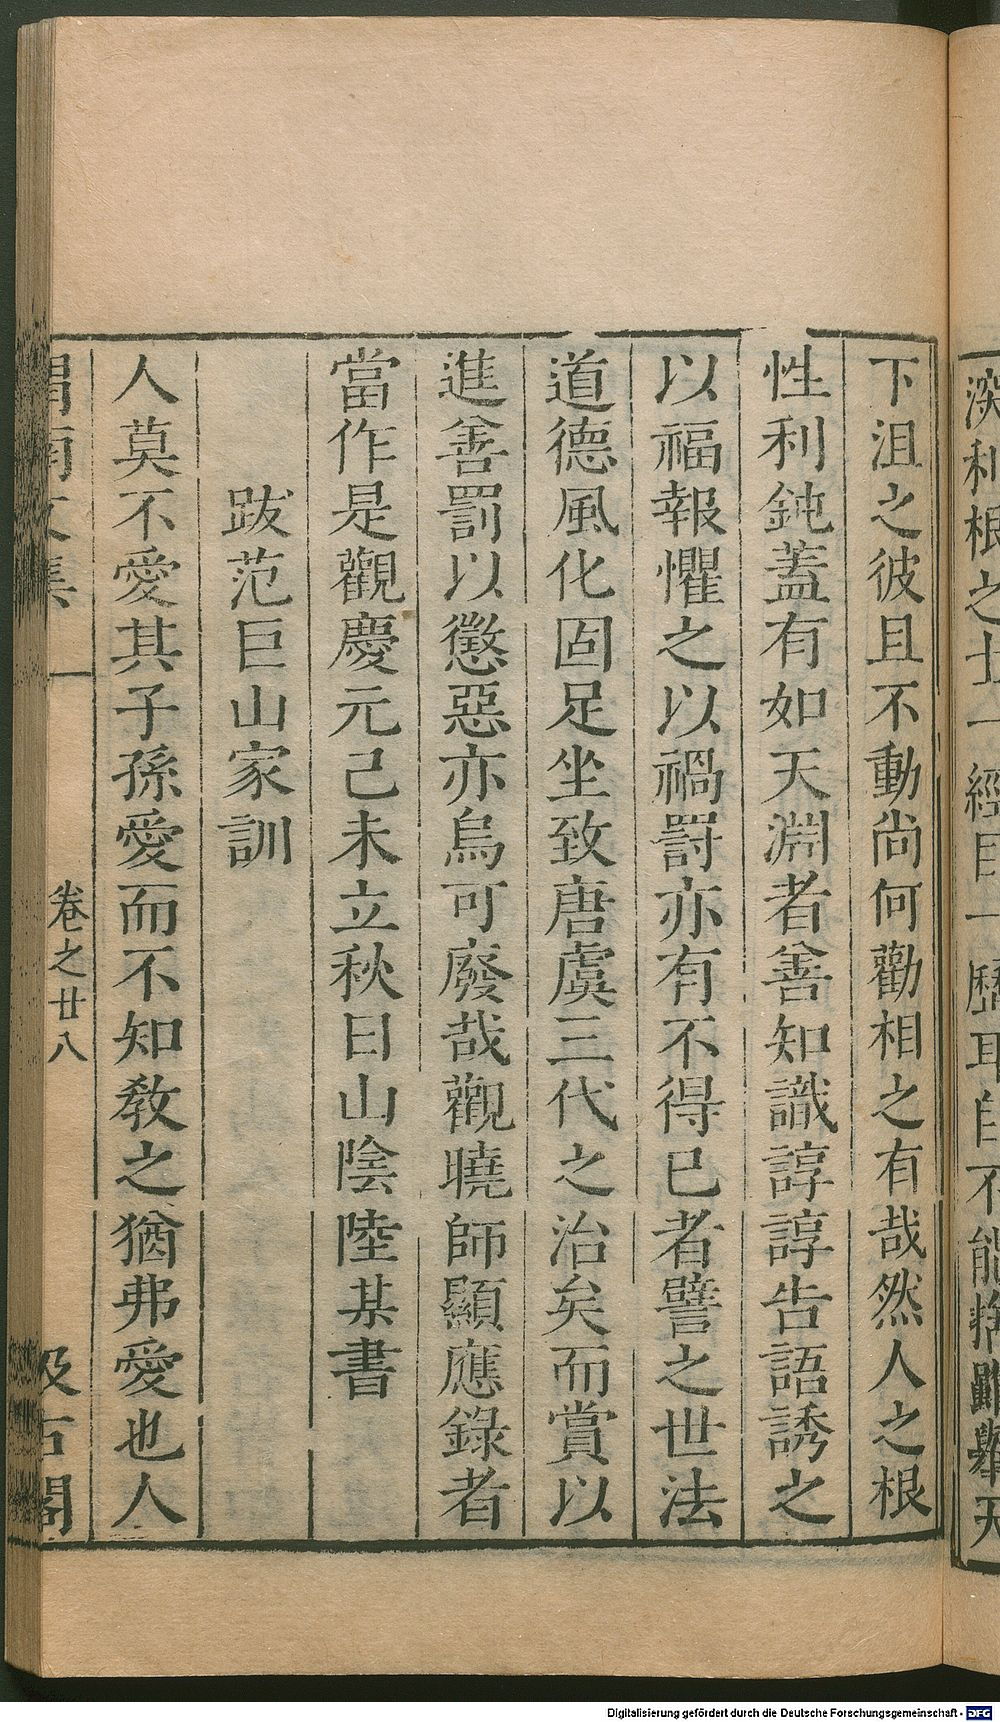 深利根之士一經目一歷耳自不能捨雖舉天
下沮之彼且不動尚何勸相之有哉然人之根
性利鈍蓋有如天淵者善知識諄諄告語誘之
以福報懼之以禍罸亦有不得已者譬之世法
道德風化固足坐致唐虞三代之治矣而賞以
進善罰以懲惡亦烏可廢哉觀曉師顯應錄者
當作是觀慶元己未立秋日山陰陸某書
跋范巨山家訓
人莫不愛其子孫愛而不知敎之猶弗愛也人
渭南文集 卷之廿八 汲古閣
Digitalisierung gefördert durch die Deutsche Forschungsgemeinschaft - DFG